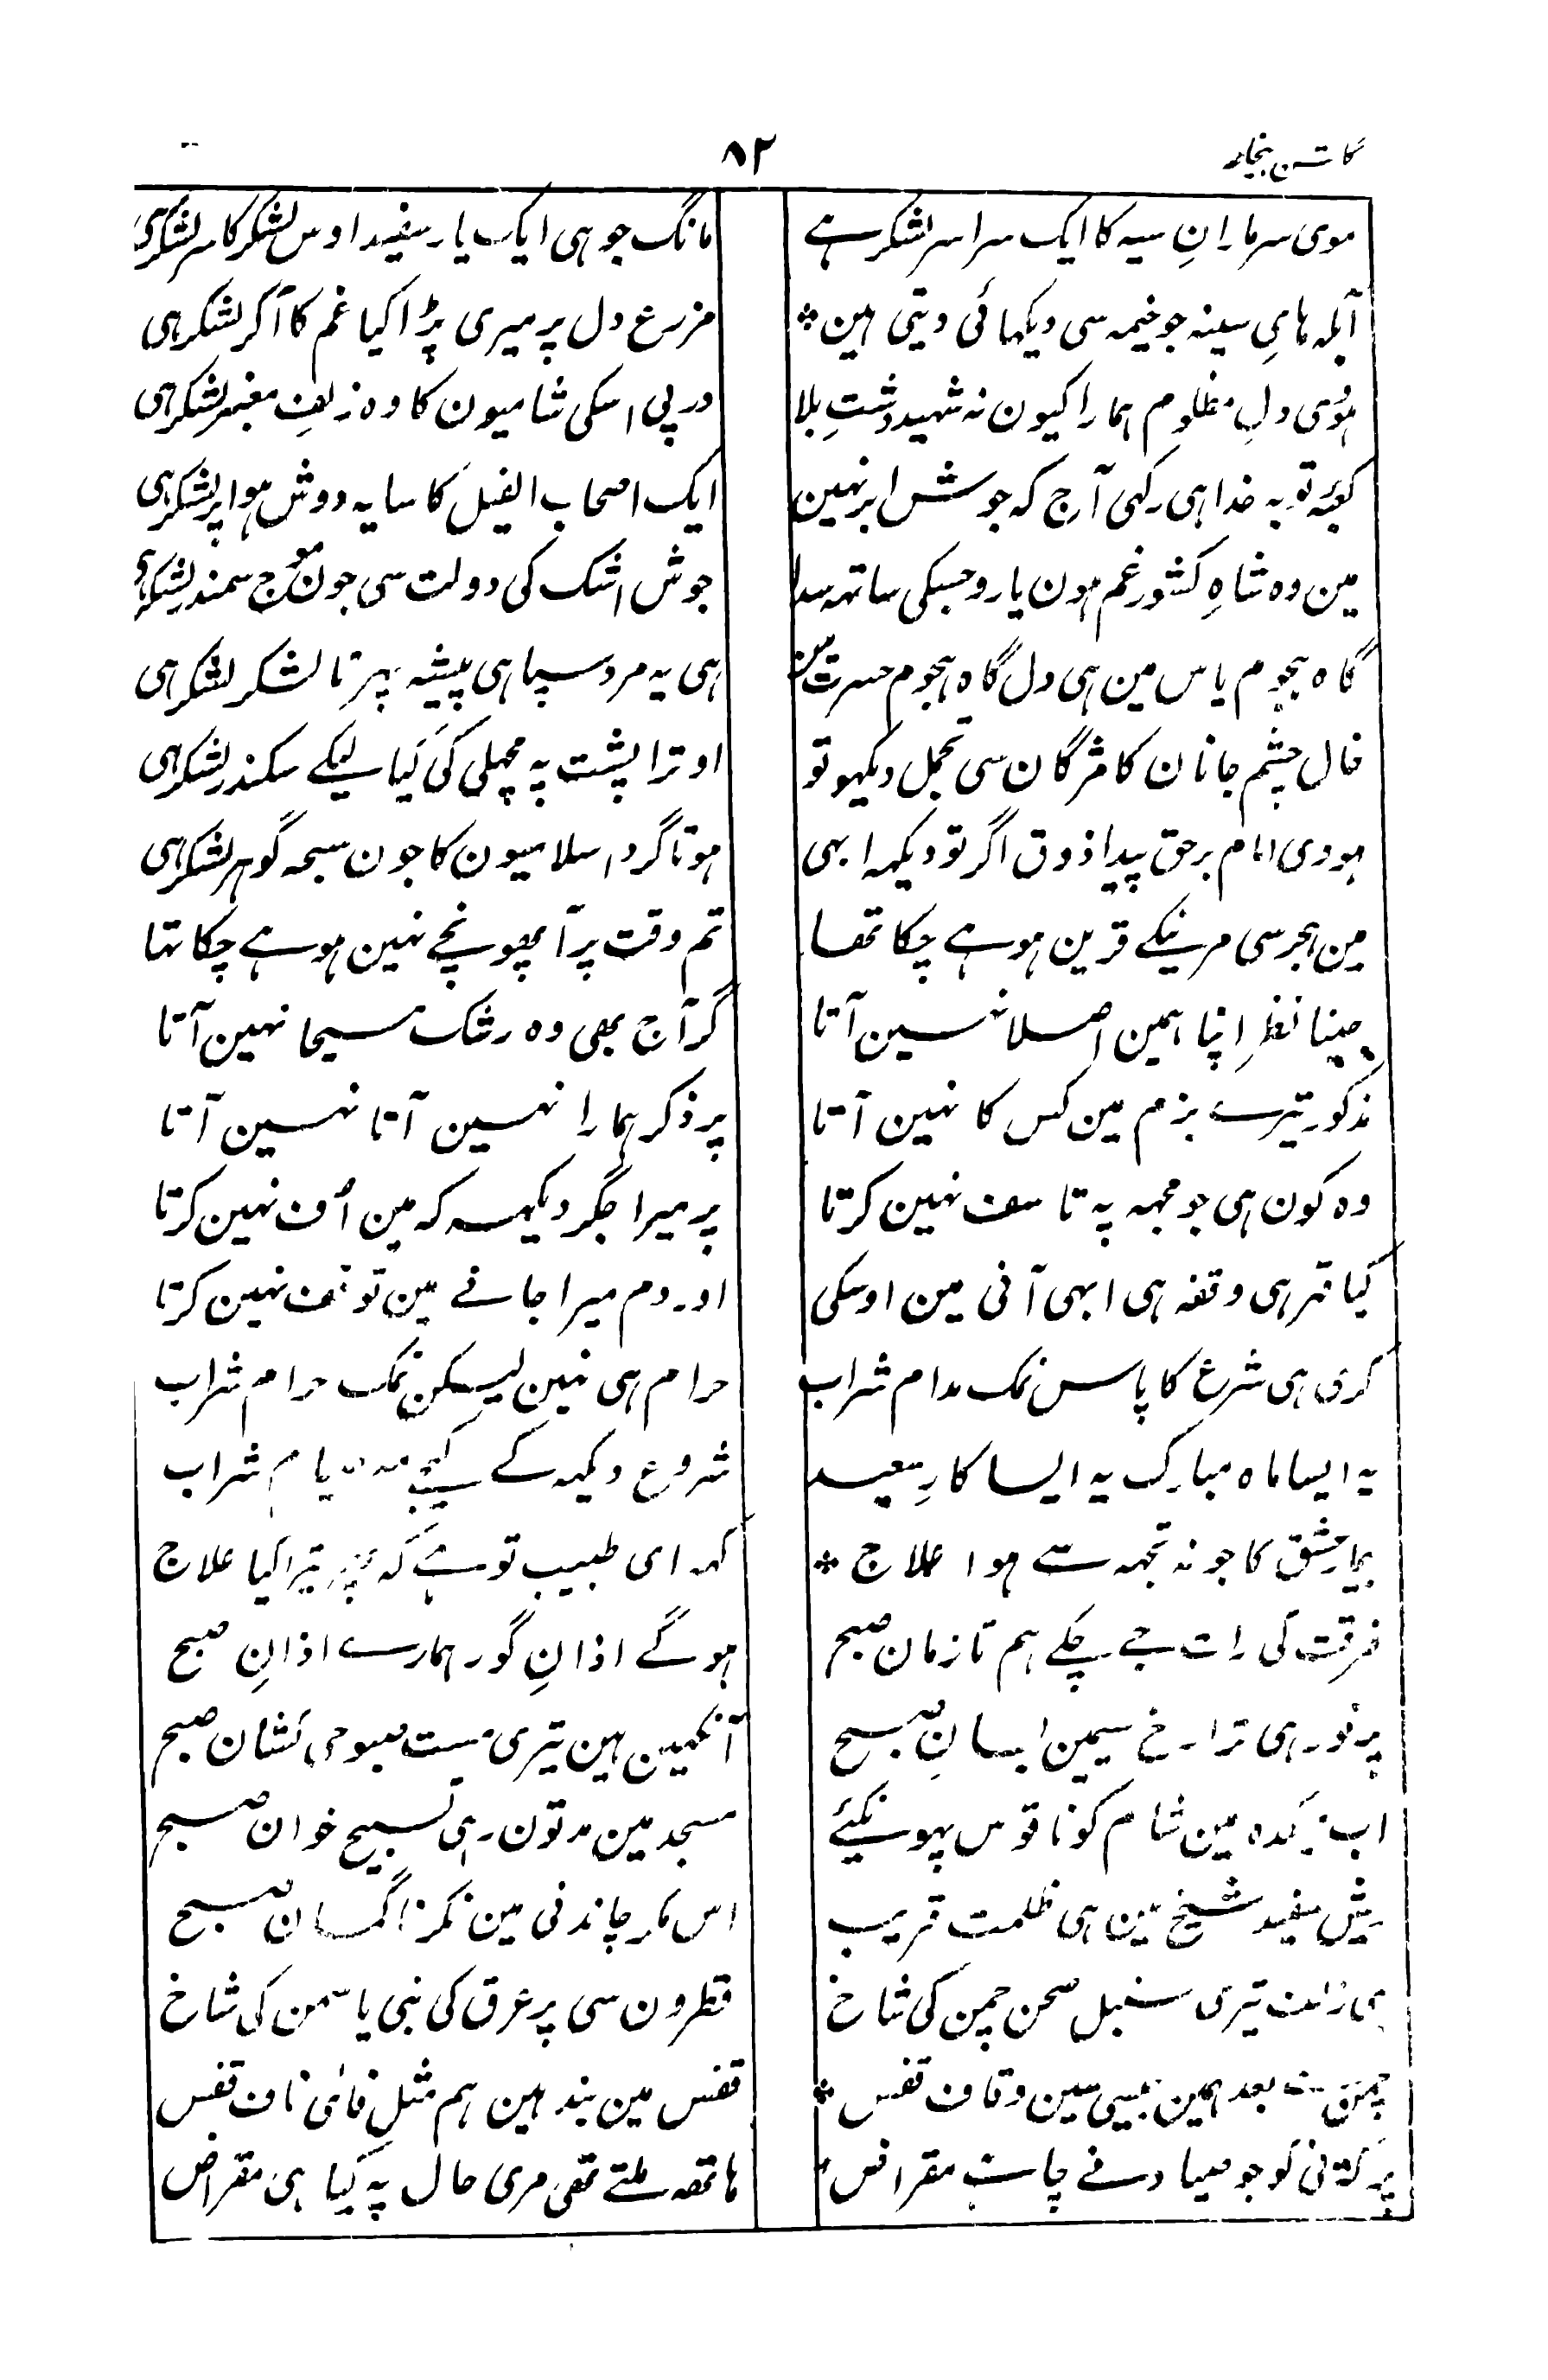 ۸۲
موی سر مارانِ سیہ کا ایک سراسر لشکر ہے
مانگ جو ہی ایک یار سفید اوس لشکر کا سر لشکر ہی
آبلہ ہایِ سینہ جو خیمہ سی دیکہائی دیتی ہین *
مزرع دل پر میری پڑا کیا غم کا آکر لشکر ہی
ہوئی دلِ مظلوم ہمارا کیون نہ شہید دشتِ بلا
درپی اسکی شامیون کا وہ زلفِ معنبر لشکر ہی
کعبۂ توبہ خدا ہی رکہی آج کہ جوش ابر نہین
ایک اصحاب الفیل کا سایہ دوش ہوا پر لشکر ہی
مین وہ شاہِ کشور غم ہون یارو جسکی ساتہہ سدا
جوش اشک کی دولت سی جون موج سمندر لشکر ہی
گاہ ہجوم یاس مین ہی دل گاہ ہجوم حسرت مین
ہی یہ مرد سپاہی پیشہ پہرتا لشکر لشکر ہی
خال چشم جانان کا مژگان سی تجمل دیکہو تو
اوترا پشت پہ مچہلی کی کیا لیکے سکندر لشکر ہی
ہووی امام برحق پیدا ذوق اگر تو دیکہہ ابہی
ہوتا گرد اسلامیون کا جون سبحہ گوہر لشکر ہی
مین ہجر سی مرنیکے قرین ہوہے چکا تھا
تم وقت پر آ پھونچے نہین ہوہے چکا تہا
جینا نظرِ اپنا ہمین اصلا نہین آتا
گر آج بھی وہ رشک مسیحا نہین آتا
مذکور تیرے بزم مین کس کا نہین آتا
پر ذکر ہمارا نہین آتا نہین آتا
وہ کون ہی جو مجہہ پہ تاسف نہین کرتا
پر میرا جگر دیکہہ کہ مین اُف نہین کرتا
کیا قہر ہی وقفہ ہی ابہی آنی مین اوسکی
اور دم میرا جانے مین توقف نہین کرتا
کری ہی شرع کا پاس نمک مدام شراب
حرام ہی نہین لیکن نمک حرام شراب
یہ ایسا ماہ مبارک یہ ایسا کارِ سعید
شروع دیکہہ کے کیجے مہ صیام شراب
بیمار عشق کا جو نہ تجہہ سے ہوا علاج *
کہہ ای طبیب توہے کہ پہر تیرا کیا علاج
فرقت کی رات جے چکے ہم تا زمان صبح
ہوگے اذانِ گور ہمارے اذانِ صبح
پرنور ہی ترا رخ سیمین بسانِ صبح
آنکہین ہین تیری مست صبوحی کشان صبح
اب بتکدہ مین شام کو ناقوس پہونکیئے
مسجد مین مدتون رہی تسبیح خوان صبح
ریش سفید شیخ مین ہی ظلمت فریب
اس مکر چاندنی مین نکرنا گمان صبح
ہی زلف تیری سنبل صحن چمن کی شاخ
قطرون سی پر عرق کی بنی یاسمن کی شاخ
بعد ہمین وقاف قفس *
قفس مین بند ہین ہم مثلِ قاف قفس
پر کترنی کو جو صیاد نے چاہے مقراض
ہاتھہ ملتے تھی مری حال پہ کیا ہی مقراض